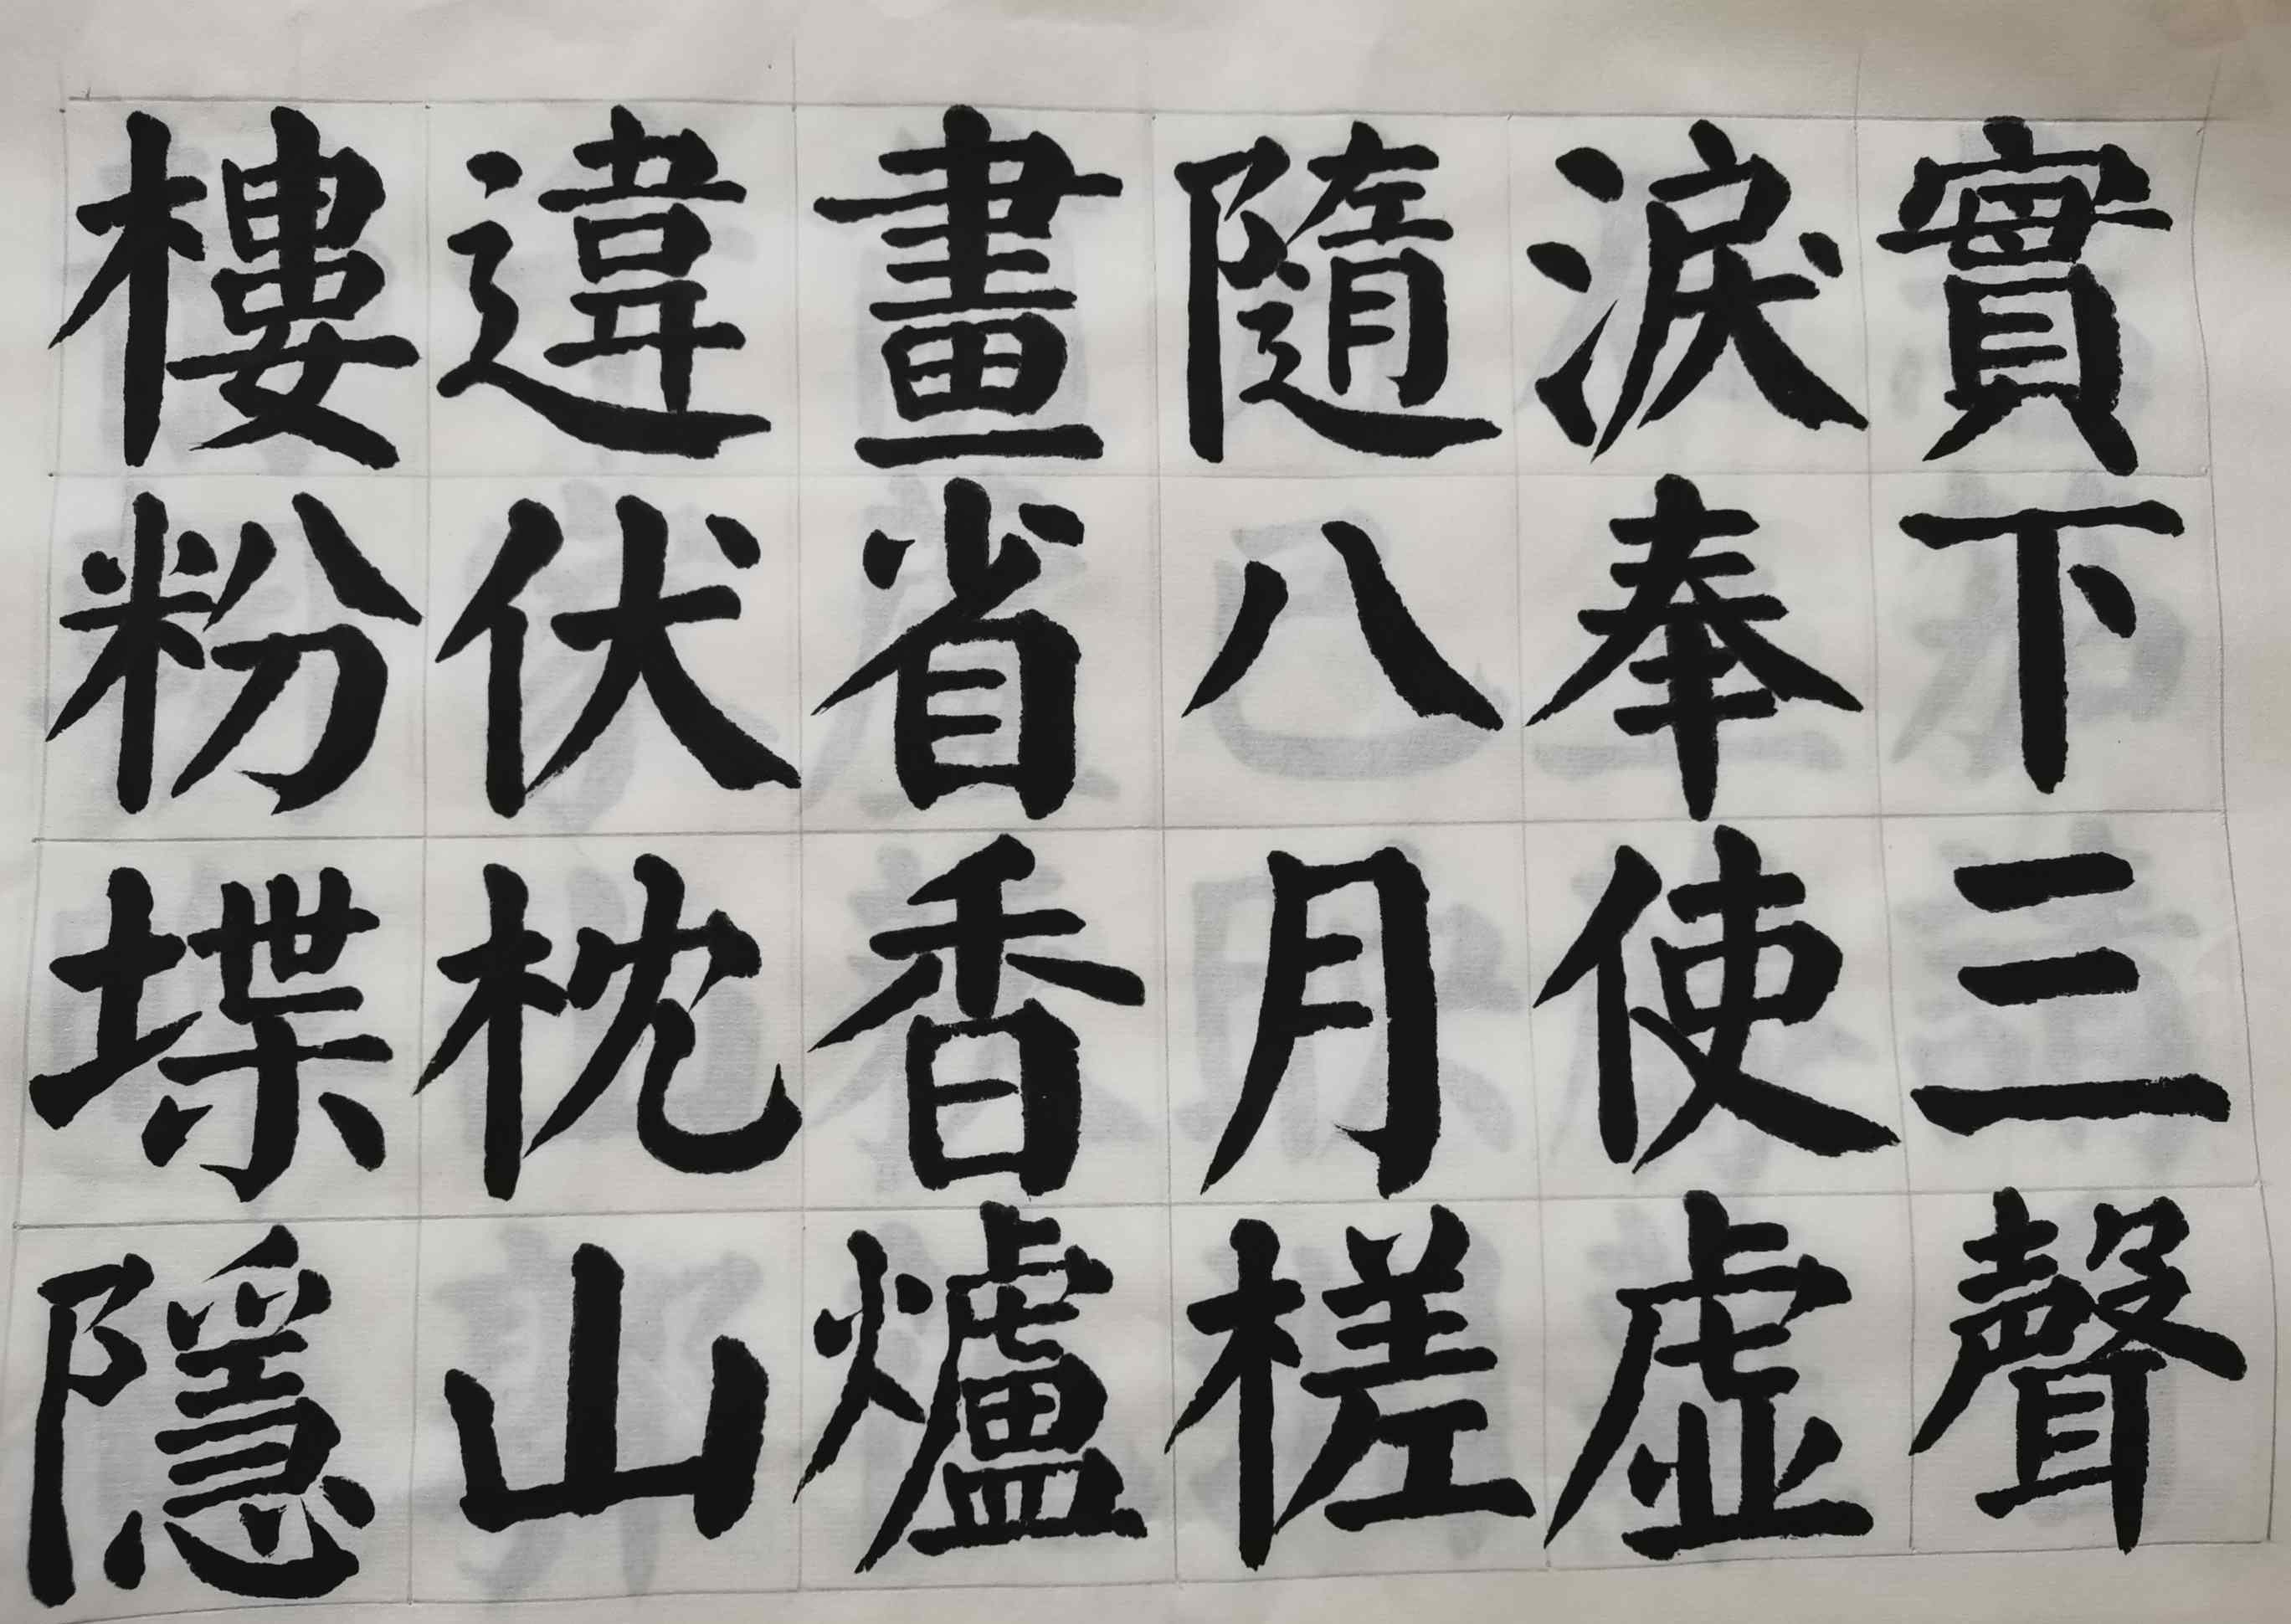 實下三聲
淚奉使虛
隨八月槎
畫省香爐
違伏枕山
樓粉堞隱